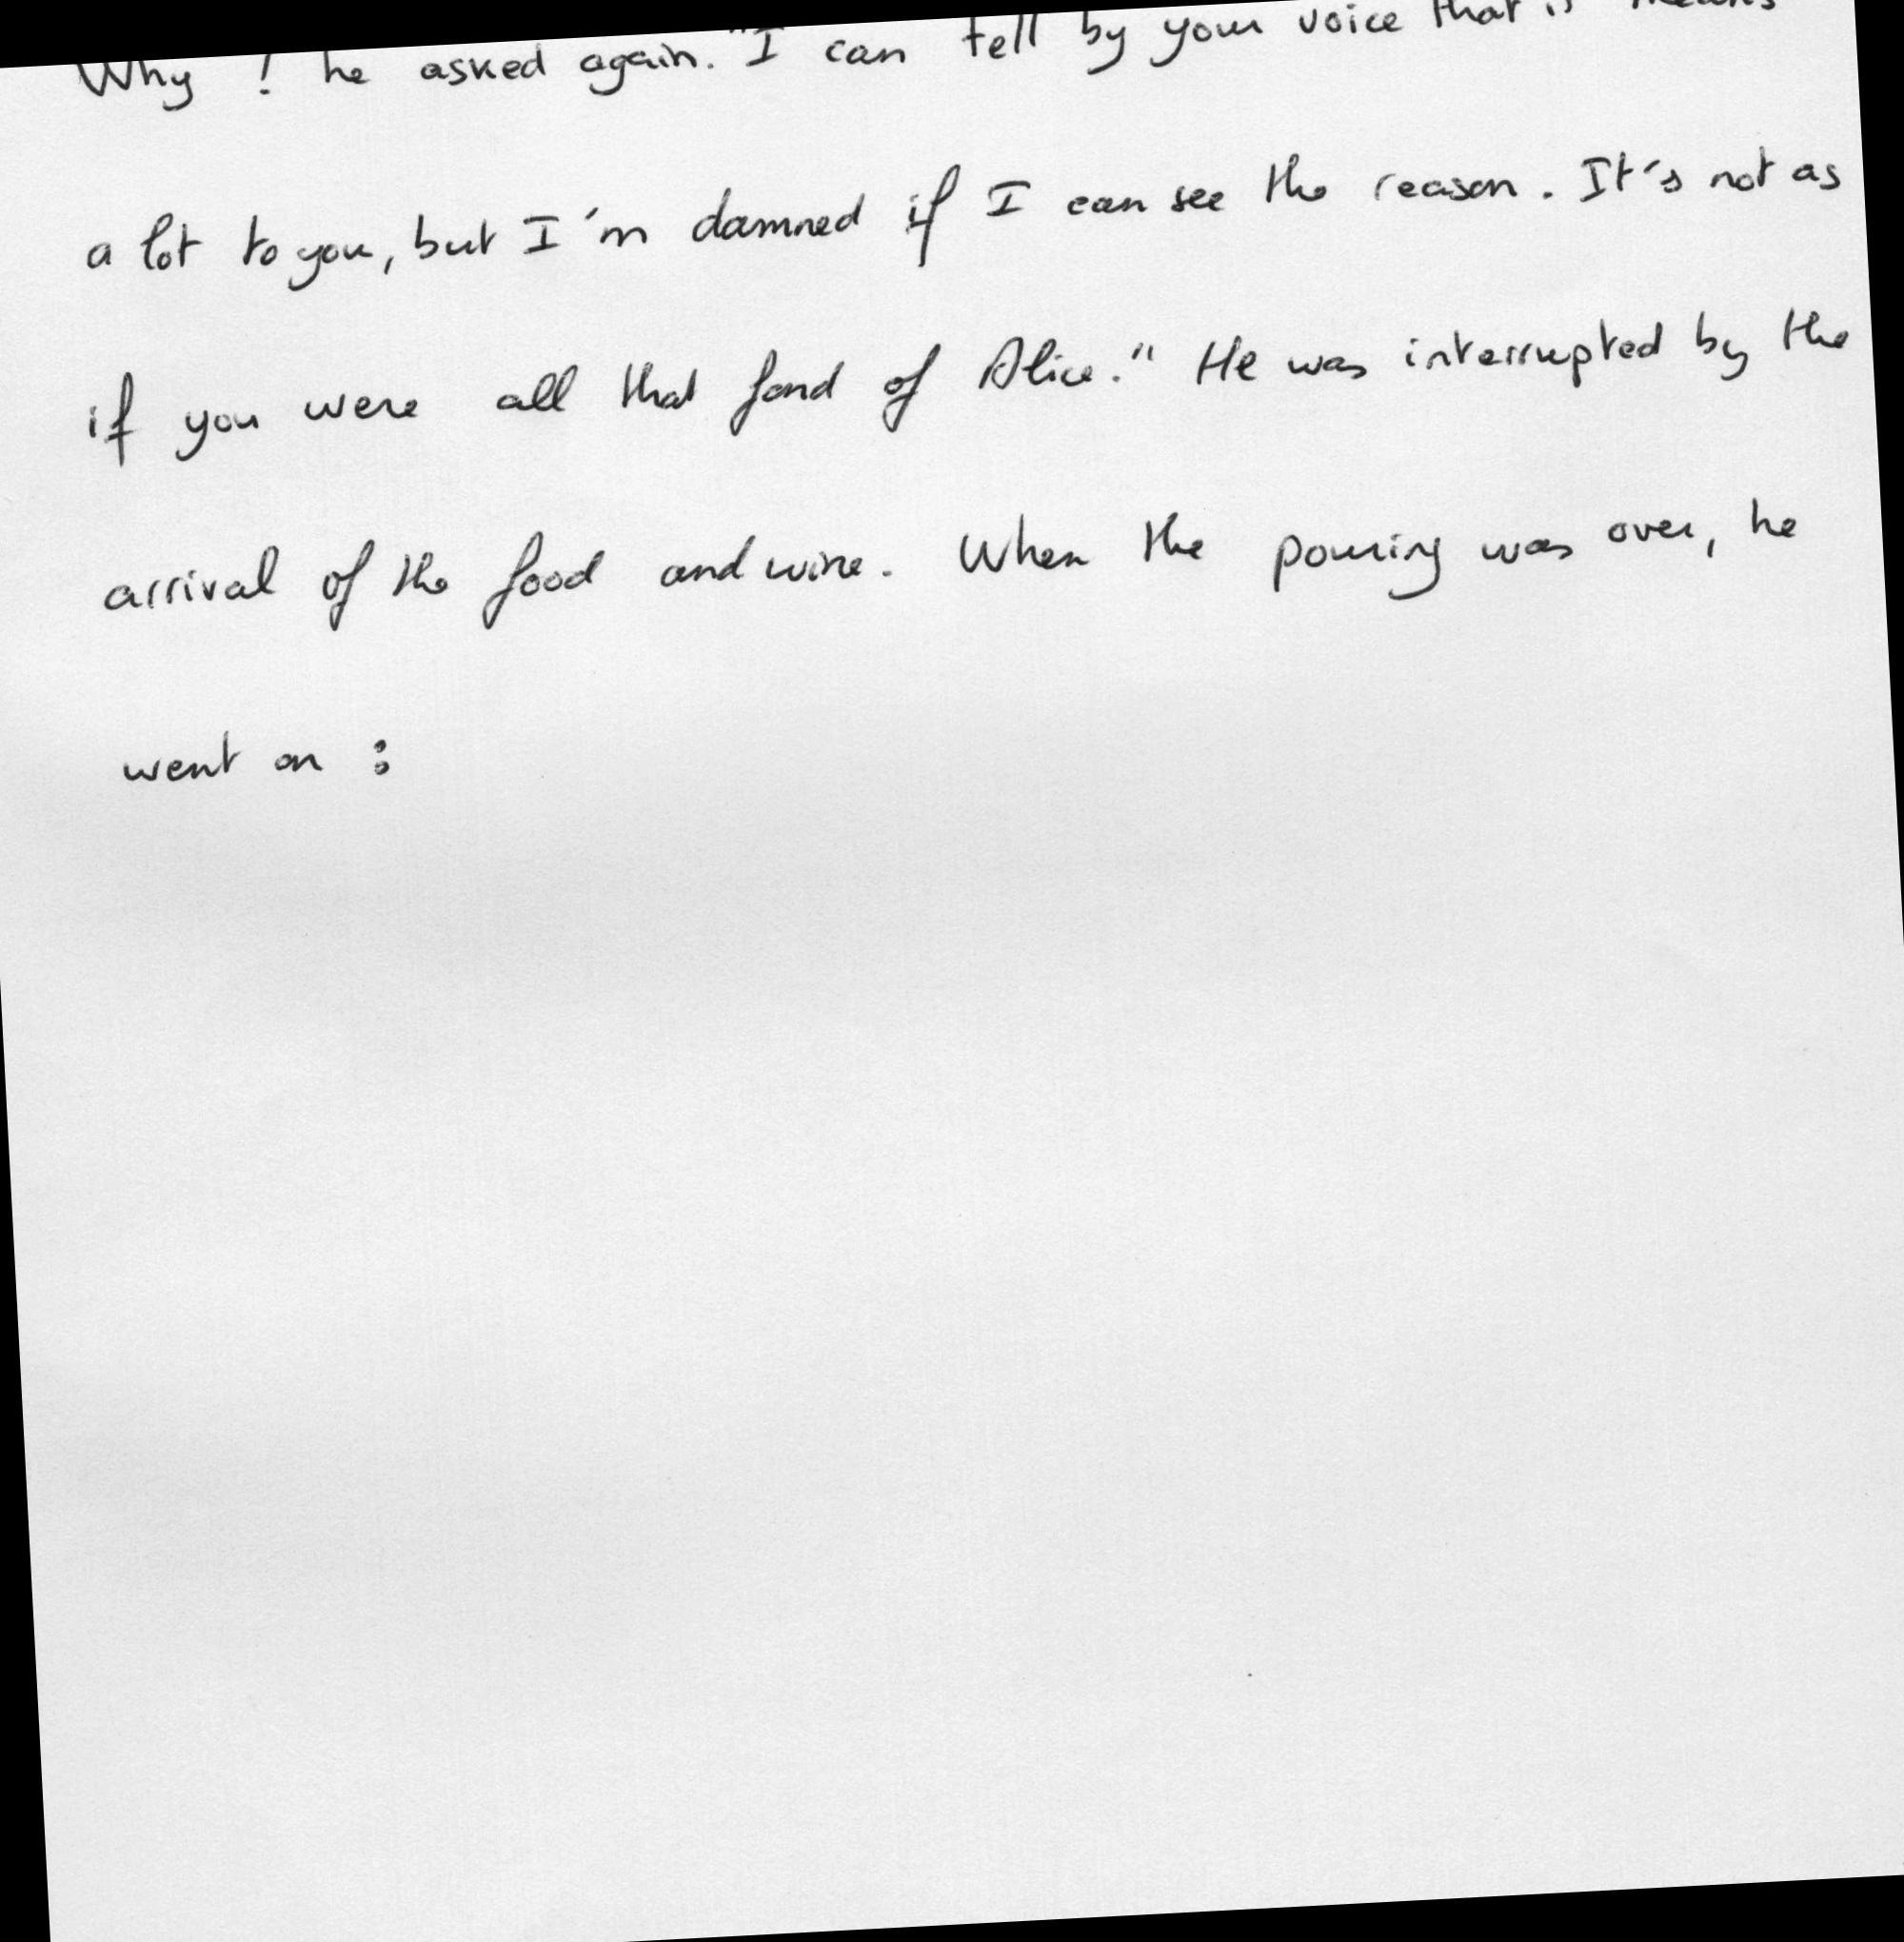 Why ! he asked again. "I can tell by your voice that it means
a lot to you, but I'm damned if I can see the reason. It's not as
if you were all that fond of Alice." He was interrupted by the
arrival of the food and wine. When the pouring was over, he
went on :